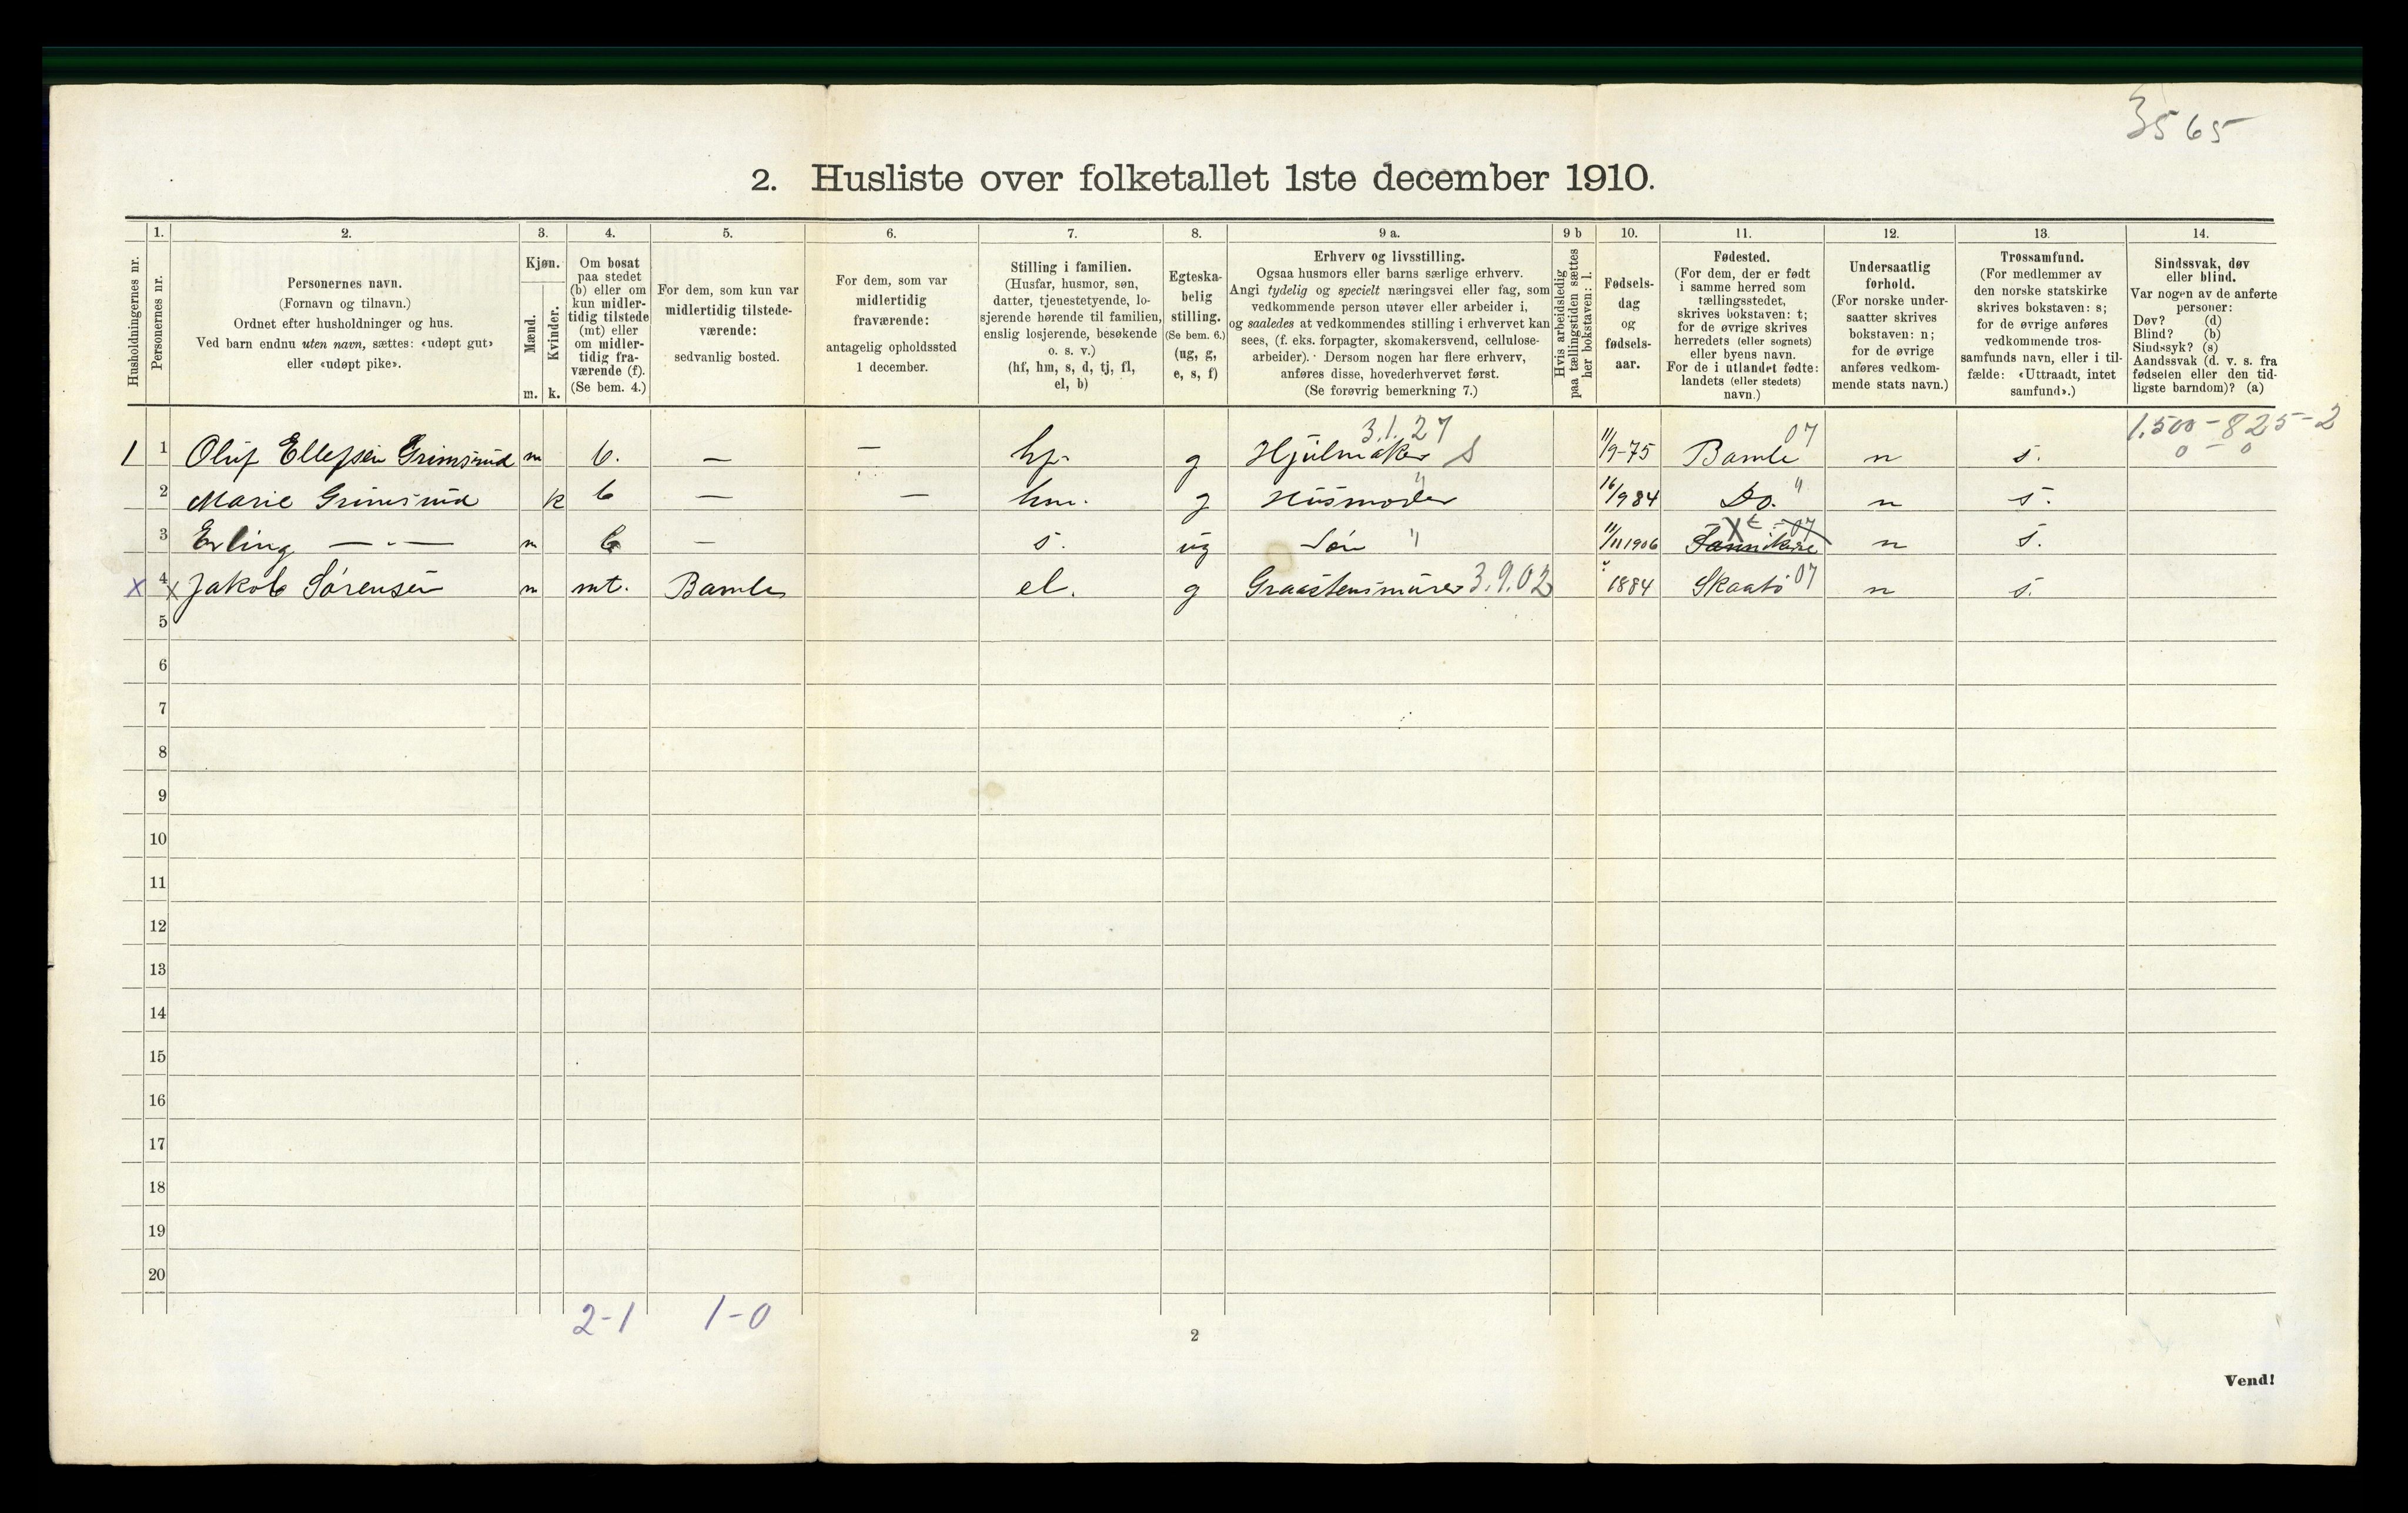 3565
2. Husliste over folketallet 1ste december 1910.
Husholdningernes nr.
1.
Personernes nr.
2.
Personernes navn.
(Fornavn og tilnavn.)
Ordnet efter husholdninger og hus.
Ved barn endnu uten navn, sættes: «udøpt gut»
eller «udøpt pike».
3.
Kjøn.
Mænd.
Kvinder.
m. k.
4.
Om bosat
paa stedet
(b) eller om
kun midler-
tidig tilstede
(mt) eller
om midler-
tidig fra-
værende (f).
(Se bem. 4.)
5.
For dem, som kun var
midlertidig tilstede-
værende:
sedvanlig bosted.
6.
For dem, som var
midlertidig
fraværende:
antagelig opholdssted
1 december.
7.
Stilling i familien.
(Husfar, husmor, søn,
datter, tjenestetyende, lo-
sjerende hørende til familien,
enslig losjerende, besøkende
o. s. v.)
(hf, hm, s, d, tj, fl,
el, b)
8.
Egteska-
belig
stilling.
(Se bem. 6.)
(ug, g,
e, s, f)
9 a.
Erhverv og livsstilling.
Ogsaa husmors eller barns særlige erhverv.
Angi tydelig og specielt næringsvei eller fag, som
vedkommende person utøver eller arbeider i,
og saaledes at vedkommendes stilling i erhvervet kan
sees, (f. eks. forpagter, skomakersvend, cellulose-
arbeider). Dersom nogen har flere erhverv,
anføres disse, hovederhvervet først.
(Se forøvrig bemerkning 7.)
9 b
Hvis arbeidsledig
paa tællingstiden sættes
her bokstaven: l.
10.
Fødsels-
dag
og
fødsels-
aar.
11.
Fødested.
(For dem, der er født
i samme herred som
tællingsstedet,
skrives bokstaven: t;
for de øvrige skrives
herredets (eller sognets)
eller byens navn.
For de i utlandet fødte:
landets (eller stedets)
navn.)
12.
Undersaatlig
forhold.
(For norske under-
saatter skrives
bokstaven: n;
for de øvrige
anføres vedkom-
mende stats navn.)
13.
Trossamfund.
(For medlemmer av
den norske statskirke
skrives bokstaven: s;
for de øvrige anføres
vedkommende tros-
samfunds navn, eller i til-
fælde: «Uttraadt, intet
samfund».)
14.
Sindssvak, døv
eller blind.
Var nogen av de anførte
personer:
Døv? (d)
Blind? (b)
Sindssyk? (s)
Aandssvak (d. v. s. fra
fødselen eller den tid-
ligste barndom)? (a)
3.1.27 07 1.500-825-2
0 - 0
1 1 Oluf Ellefsen Grimsrud m b. — — hf. g Hjulmaker S 11/9-75 Bamle n s.
2 Marie Grimsrud k b — — hm. g Husmoder " 16/9 84 Do. " n s.
X t - 07
3 Erling — " — m b — s. ug Søn " 11/11 1906 Sannikedal n s.
X 4 X Jakob Sørensen m mt. Bamle el. g Graastensmurer 3.9.02 1884 Skaatø 07 n s.
5
6
7
8
9
10
11
12
13
14
15
16
17
18
19
20
2-1 1-0
2
Vend!